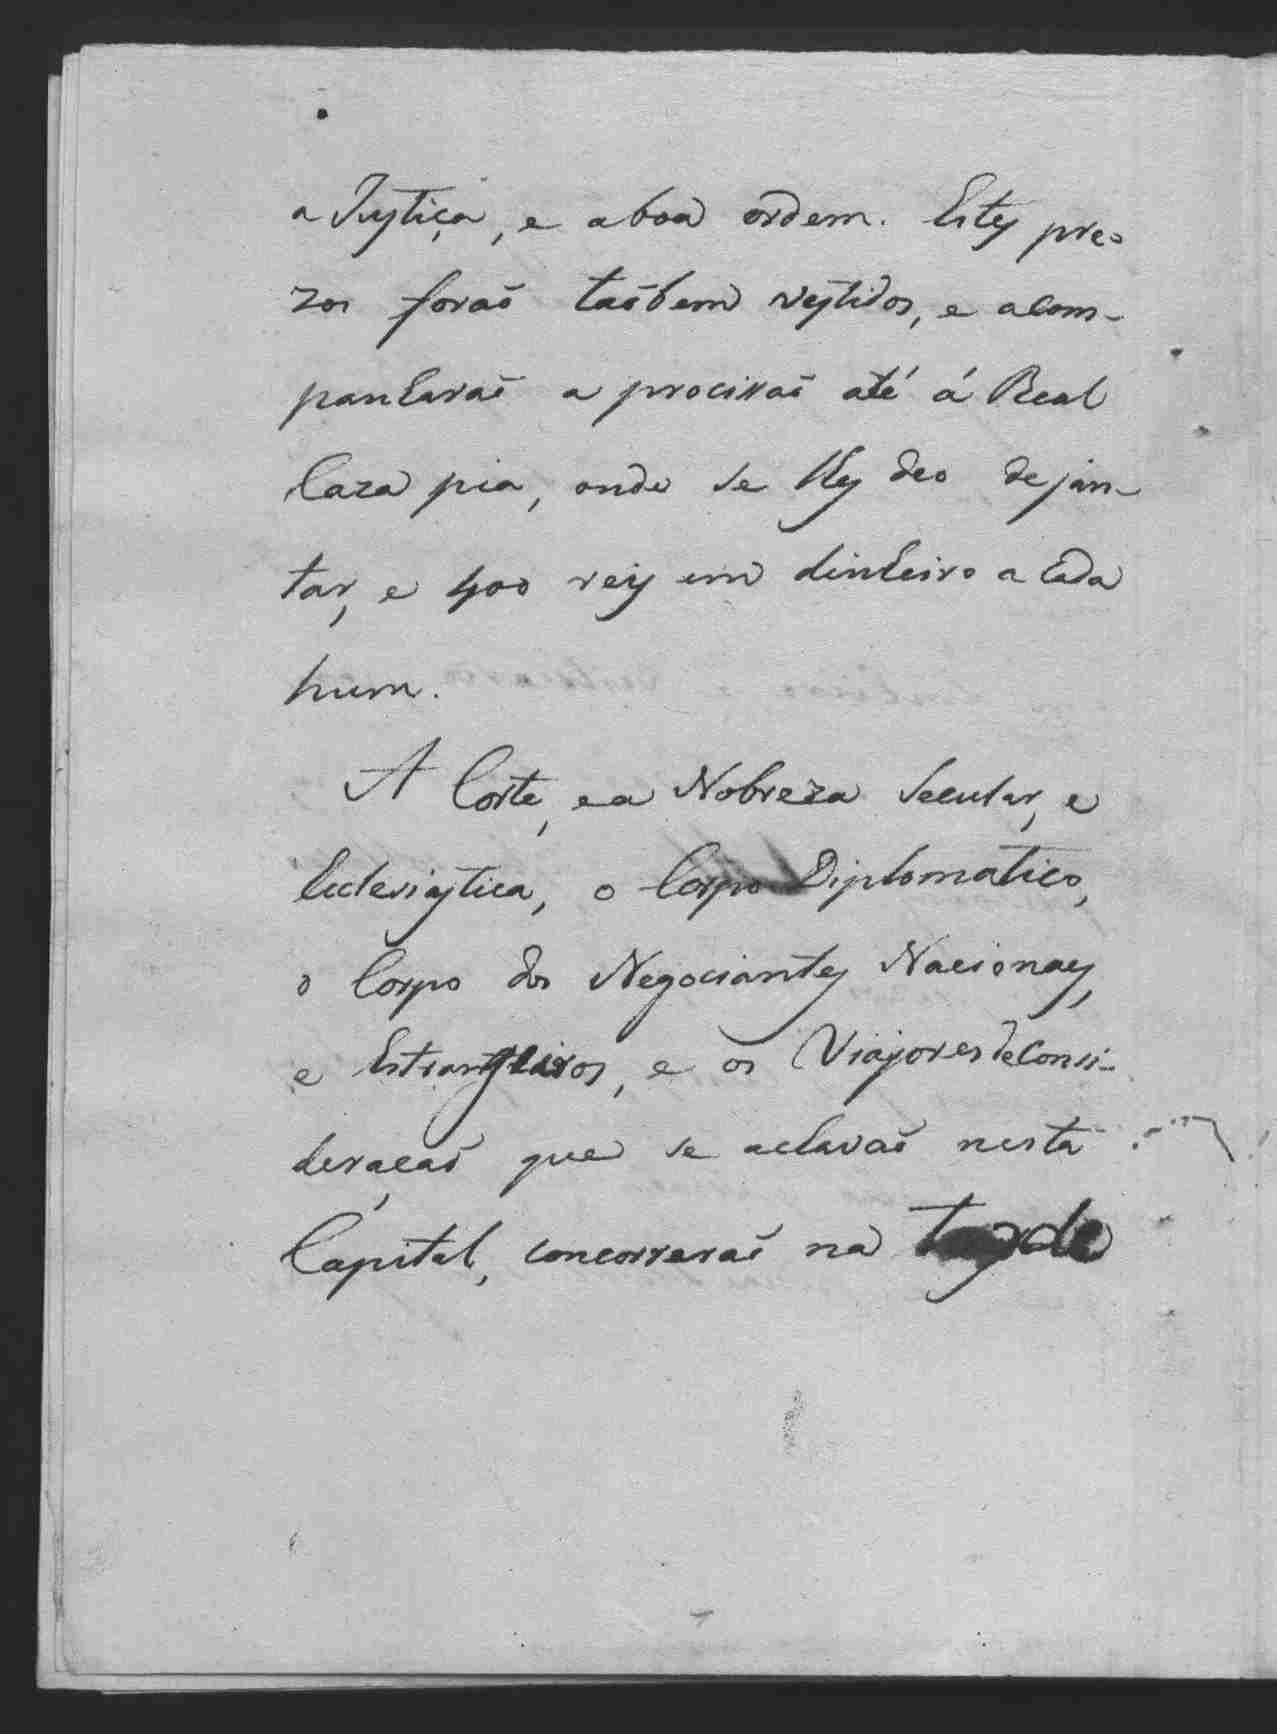 a Justiça, e a boa ordem. Estes pre-
zos foraõ taõbem vestidos, e acom-
panharaõ a procissaõ até á Real
Caza pia, onde se lhes deo de jan-
tar, e 400 reis em dinheiro a Cada
hum.
A Corte, e a Nobreza Secular, e
Ecclesiastica, o Corpo Diplomatico,
o Corpo dos Negociantes Nacionaes,
e Estrangeiros, e os Viajores de Consi-
deraçaõ que se achavaõ nesta
Capital, concorreraõ na tarde